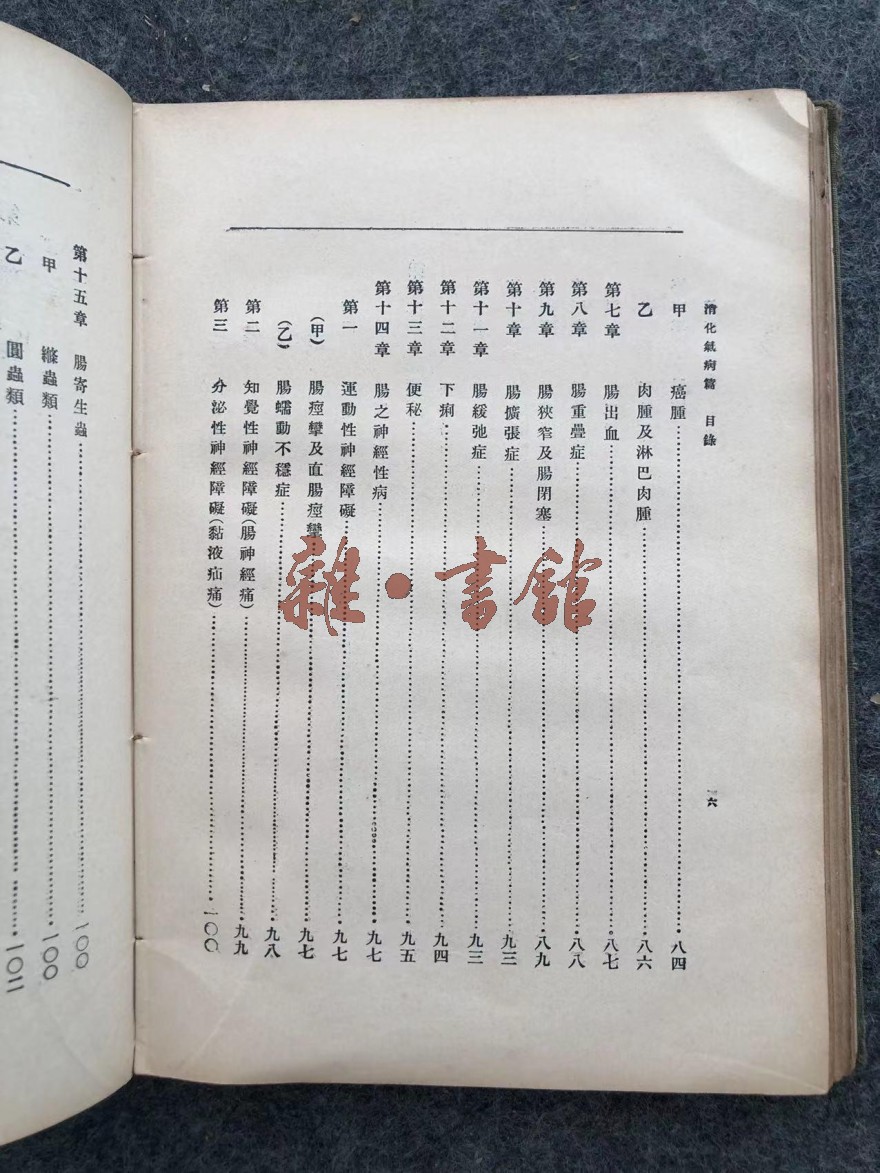 消化器病篇　目錄　六
甲　癌腫…………八四
乙　肉腫及淋巴肉腫…………八六
第七章　腸出血…………八七
第八章　腸重疊症…………八八
第九章　腸狹窄及腸閉塞…………八九
第十章　腸擴張症…………九三
第十一章　腸緩弛症…………九三
第十二章　下痢…………九四
第十三章　便秘…………九五
第十四章　腸之神經性病…………九七
第一　運動性神經障礙…………九七
（甲）　腸痙攣及直腸痙攣…………九七
（乙）　腸蠕動不穩症…………九八
第二　知覺性神經障礙（腸神經痛）…………九九
第三　分泌性神經障礙（黏液疝痛）…………一〇〇
第十五章　腸寄生蟲…………一〇〇
甲　縧蟲類…………一〇〇
乙　圓蟲類…………一〇二
雜·書館